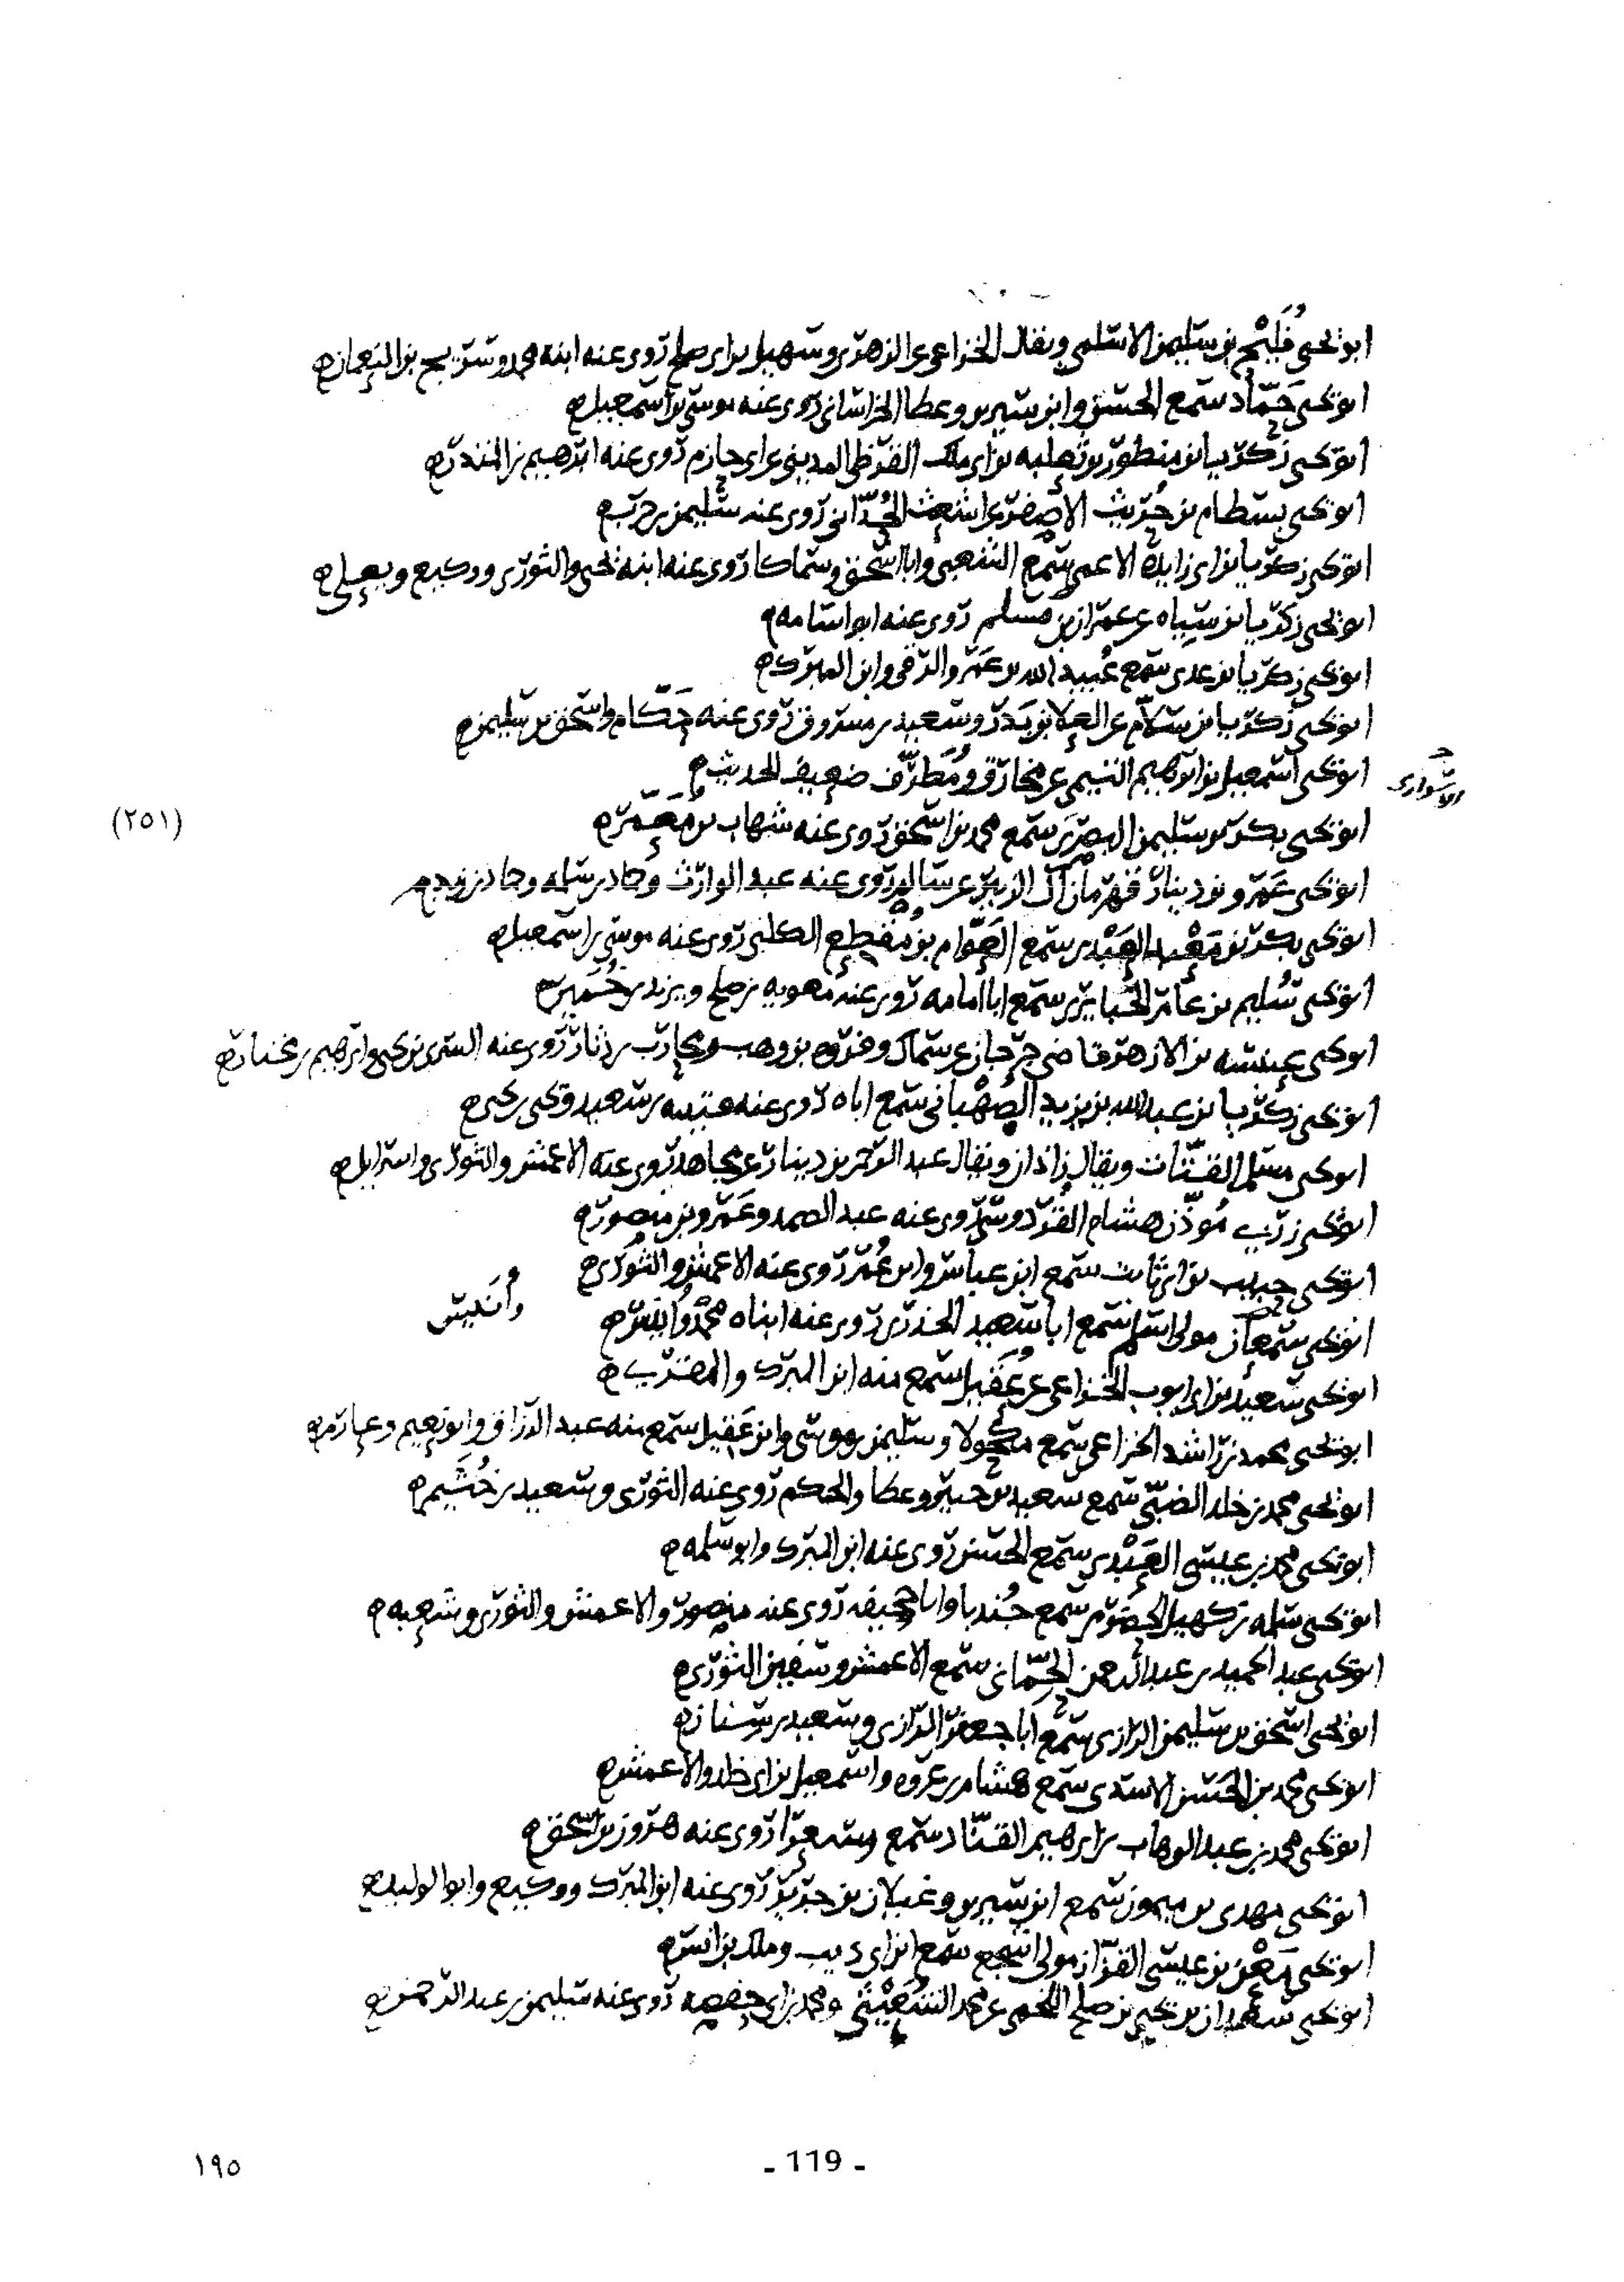 ابو يحيى فُلَيْح بن سليمن الاسلمي ويقال الخزاعي عن الزهري وسهيل بن ابي صلح روى عنه ابنه محمد وسريج بن النعمان ه
ابو يحيى حَمّاد سمع الحسن وابن سيرين وعطا الخراساني روى عنه موسى بن اسمعيل ه
ابو يحيى زكريا بن منظور بن ثعلبه بن ابي ملك القرظي المديني عن ابي حازم روى عنه ابرهيم بن المنذر ه
ابو يحيى بسطام بن حُريث الاصفر عن اشعث الحُدّاني روى عنه سليمن بن حرب ه
ابو يحيى زكريا بن ابي زايدة الاعمى سمع الشعبي وابا اسحق وسماكا روى عنه ابنه يحيى والثوري ووكيع ويعلى ه
ابو يحيى زكريا بن سياه عن عمران بن مسلم روى عنه ابو اسامه ه
ابو يحيى زكريا بن عدي سمع عُبيد الله بن عَمرو الرقي وابن المبرك ه
ابو يحيى زكريا بن سلام عن العلا بن بَدر وسعيد بن مسروق روى عنه حَكّام واسحق بن سليمن ه
ابو يحيى اسمعيل بن ابرهيم التيمي عن مخارق ومُطَرِّف ضعيف الحديث ه
الاسواري
ابو يحيى بكر بن سليمن البصري سمع محمد بن اسحق روى عنه شهاب بن مُعَمّر ه
(٢٥١)
ابو يحيى عَمرو بن دينار قهرمان آل الزبير عن سالم روى عنه عبد الوارث وحماد بن سلمه وحماد بن زيد ه
ابو يحيى بكر بن مَعْبد العَبْدي سمع العَوّام بن مُقطع الكلبي روى عنه موسى بن اسمعيل ه
ابو يحيى سُليم بن عامر الخبايري سمع ابا امامه روى عنه معويه بن صلح ويزيد بن خُمَير ه
ابو يحيى عنبسه بن الازهر قاضي جرجان عن سماك وفروه بن وهب ومحارب بن دثار روى عنه السري بن يحيى وابرهيم بن مختار ه
ابو يحيى زكريا بن عبد الله بن يزيد الصُهْباني سمع اباه روى عنه قتيبه بن سعيد ويحيى بن يحيى ه
ابو يحيى مسلم القتّات ويقال زاذان ويقال عبد الرحمن بن دينار عن مجاهد روى عنه الاعمش والثوري واسرايل ه
ابو يحيى زربي مُوذّن هشام القردوسي روى عنه عبد الصمد وعَمرو بن منصور ه
ابو يحيى حبيب بن ابي ثابت سمع ابن عباس وابن عُمر روى عنه الاعمش والثوري ه
ابو يحيى سمعان مولى اسلم سمع ابا سعيد الخدري روى عنه ابناه محمد وانيس ه
وأُنَيس
ابو يحيى سعيد بن ابي ايوب الخزاعي عن عُقَيل سمع منه ابن المبرك والمقري ه
ابو يحيى محمد بن راشد الخزاعي سمع مكحولا وسليمن بن موسى وابن عَقيل سمع منه عبد الرزاق وابو نعيم وعارم ه
ابو يحيى محمد بن خلد الضبّي سمع سعيد بن جبير وعطا والحكم روى عنه الثوري وسعيد بن خُثَيم ه
ابو يحيى محمد بن عيسى العَبْدي سمع الحسن روى عنه ابن المبرك وابو سلمه ه
ابو يحيى سلمه بن كهيل الحضرمي سمع جُندبا وابا جحيفه روى عنه منصور والاعمش والثوري وشعبه ه
ابو يحيى عبد الحميد بن عبد الرحمن الحِمّاني سمع الاعمش وسفين الثوري ه
ابو يحيى اسحق بن سليمن الرازي سمع ابا جعفر الرازي وسعيد بن سنان ه
ابو يحيى محمد بن الحسن الاسدي سمع هشام بن عروه واسمعيل بن ابي خلد والاعمش ه
ابو يحيى محمد بن عبد الوهاب بن ابرهيم القنّاد سمع مِسعرا روى عنه هرون بن اسحق ه
ابو يحيى مهدي بن ميمون سمع ابن سيرين وغيلان بن جرير روى عنه ابن المبرك ووكيع وابو الوليد ه
ابو يحيى مَعْن بن عيسى القزّاز مولى اشجع سمع ابن ابي ذيب وملك بن انس ه
ابو يحيى سعدان بن يحيى بن صلح اللخمي عن محمد الشُعَيْثي ومحمد بن ابي حفصه روى عنه سليمن بن عبد الرحمن ه
- 119 -
١٩٥